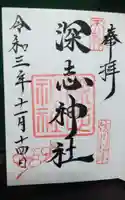 奉拝
深志神社
令和三年十一月十四日